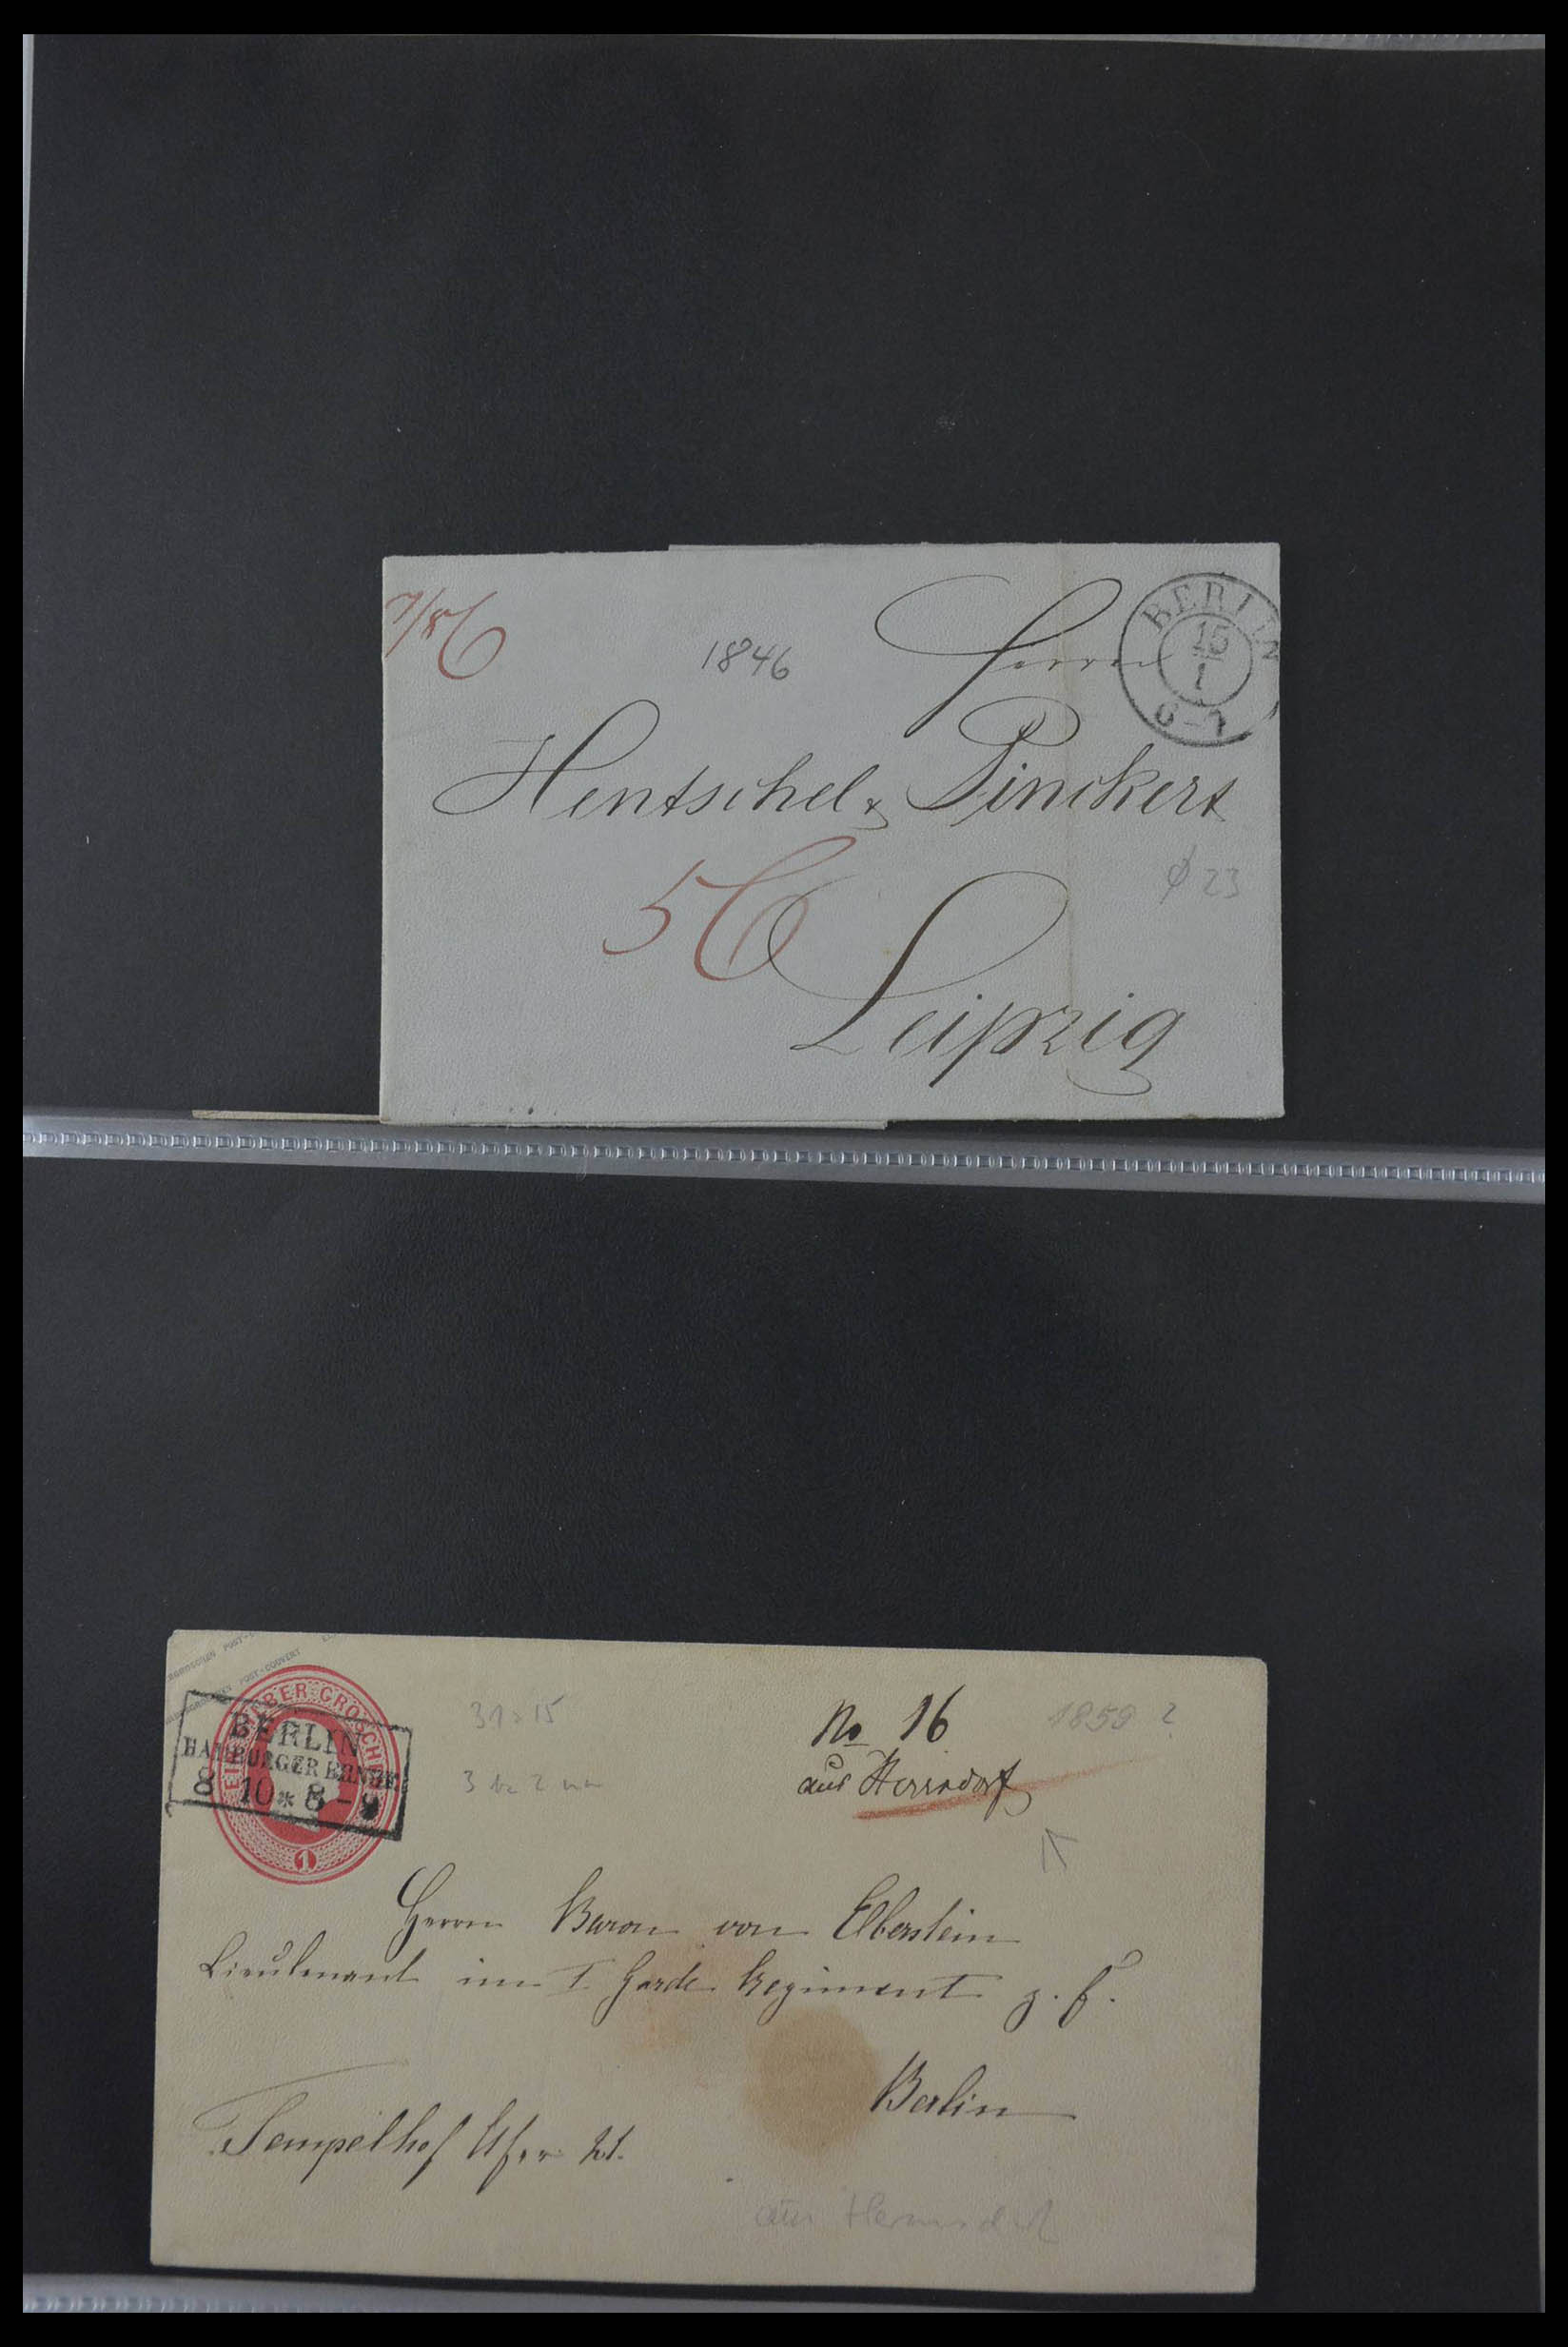 1846
Herren
BERLIN
15
1
6-7
Hentschel & Pinckert
56
φ 23
Leipzig
POST-COUVERT
SILBER GROSCHEN
1
BERLIN
HAMBURGER BHNHF.
8 10 * 8-9
31 x 15
No 16
1859 ?
aus Hermsdorf
Herrn Baron von Elberstein
Lieutenant im I. Garde Regiment z. F.
Berlin
Tempelhof Ufer 21.
aus Hermsdorf